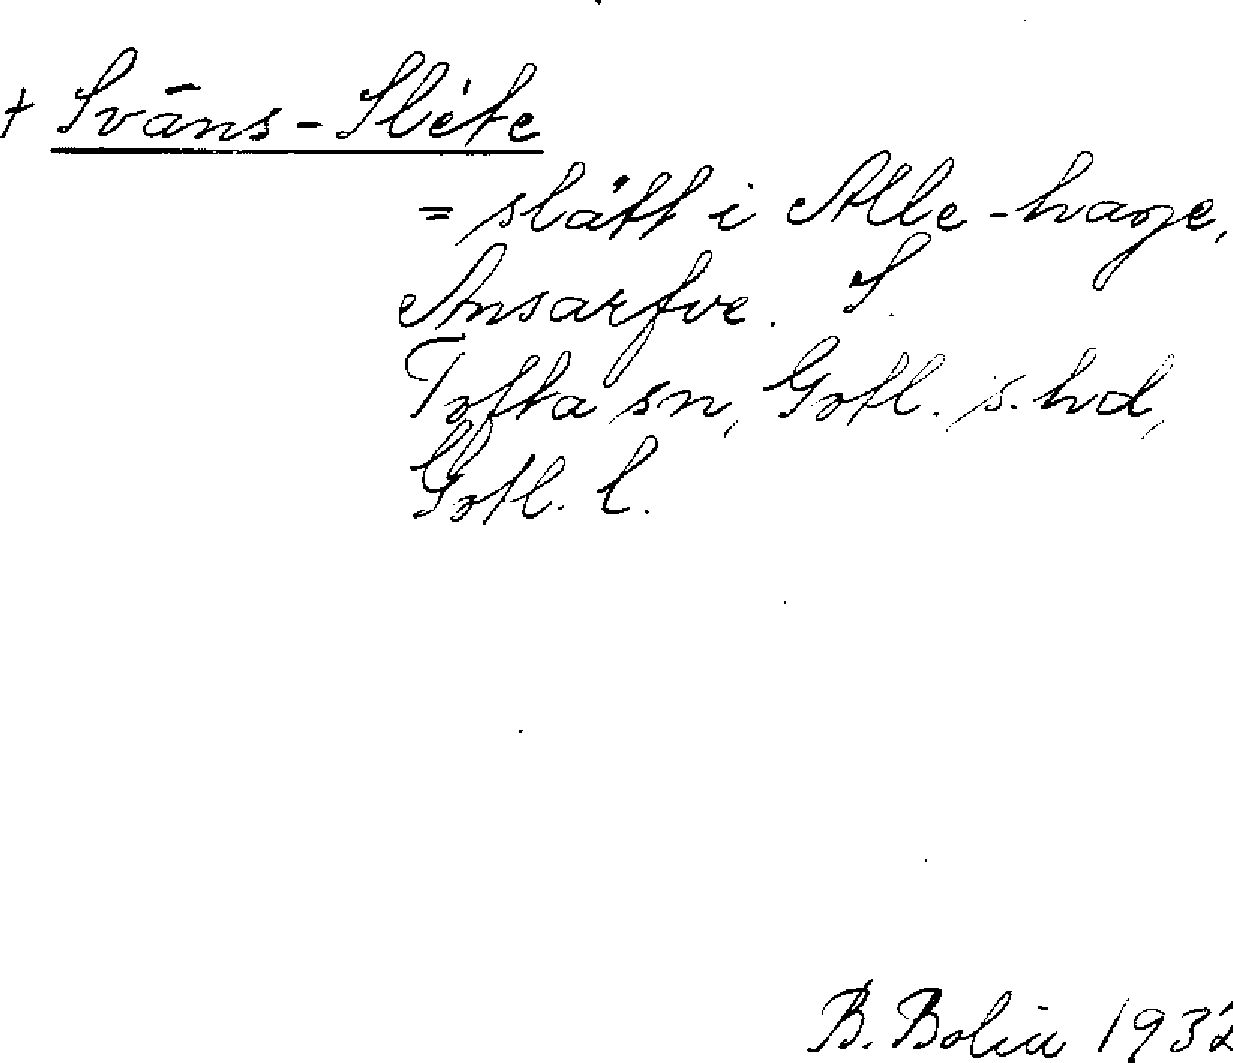 + Svāns-Slėte
= slått i Alle-hage,
Ansarfve. S.
Tofta sn, Gotl. s. hd,
Gotl. l.
B. Bolin 1932